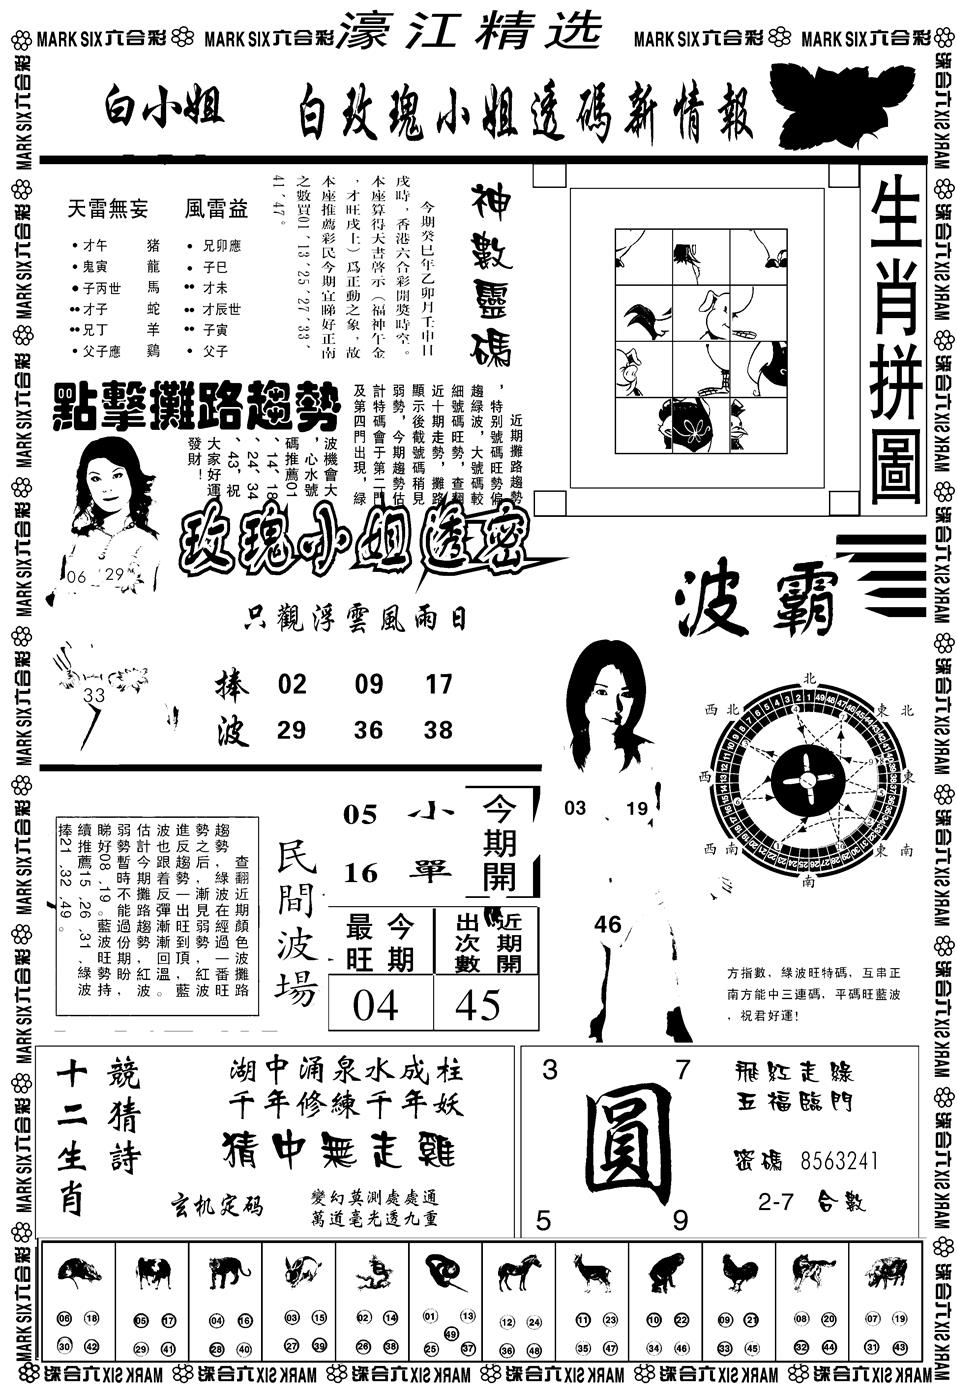 濠江精选
MARK SIX六合彩 MARK SIX六合彩 MARK SIX六合彩 MARK SIX六合彩
白小姐 白玫瑰小姐透碼新情報
生肖拼圖
天雷無妄 風雷益
• 才午 豬 • 兄卯應
• 鬼寅 龍 • 子巳
• 子丙世 馬 •• 才未
•• 才子 蛇 •• 才辰世
•• 兄丁 羊 •• 子寅
• 父子應 鷄 • 父子
神數靈碼
今期癸巳年乙卯月壬申日
戌時，香港六合彩開獎時空。
本座算得天書啓示（福神午金
，才旺戌上）爲正動之象，故
本座推薦彩民今期宜睇好正南
之數買01、13、25、27、33、
41、47。
點擊攤路趨勢
近期攤路趨勢
，特别號碼旺勢偏
趨綠波，大號碼較
細號碼旺勢，查翻
近十期走勢，攤路
顯示後截號碼稍見
弱勢，今期趨勢估
計特碼會于第二門
及第四門出現，綠
波機會大
，心水號
碼推薦01
、14、18
、24、34
、43，祝
大家好運
發財！
玫瑰小姐透密
06 29
33
只觀浮雲風雨日
捧波
02 09 17
29 36 38
波霸
北
西北 東北
西 東
西南 東南
南
03 19
46
方指數，綠波旺特碼，互串正
南方能中三連碼，平碼旺藍波
，祝君好運！
查翻近期顏色波攤路
趨勢，綠波在經過一番旺
勢之后，漸見弱勢，紅波
進反趨勢一出旺到頂，藍
波也跟着反彈漸漸回溫。
估計今期攤路趨勢，紅波
弱勢暫時不能過份期盼，
睇好08、19。藍波旺勢持
續推薦15、26、31，綠波
捧21、32、49。
民間波場
05 小
16 單
今期開
最旺 今期
出次數 近期開
04 45
十二生肖
競猜詩
湖中涌泉水成柱
千年修練千年妖
猜中無走雞
玄机定码
變幻莫測處處通
萬道毫光透九重
3 7
圓
5 9
飛紅走綠
五福臨門
密碼 8563241
2-7 合數
06 18 05 17 04 16 03 15 02 14 01 13 12 24 11 23 10 22 09 21 08 20 07 19
49
30 42 29 41 28 40 27 39 26 38 25 37 36 48 35 47 34 46 33 45 32 44 31 43
MARK SIX六合彩 MARK SIX六合彩 MARK SIX六合彩 MARK SIX六合彩 MARK SIX六合彩 MARK SIX六合彩